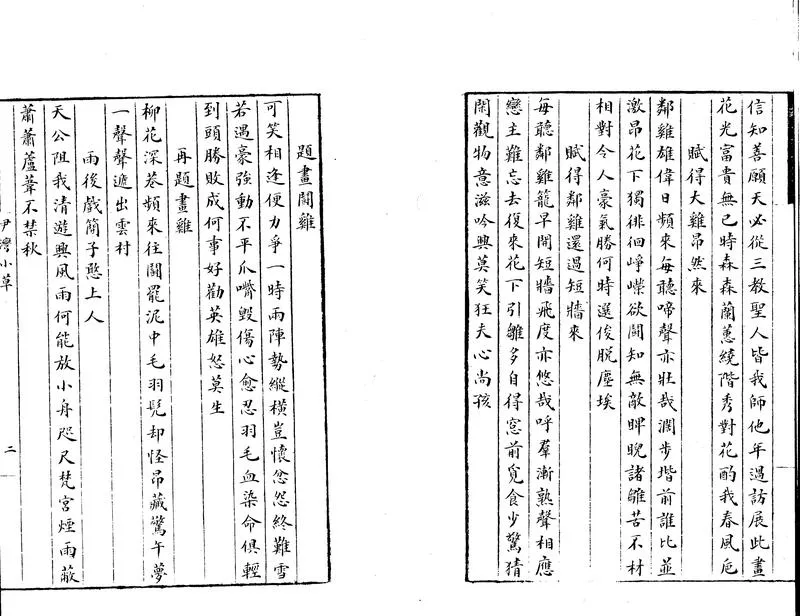 信知善願天必從三教聖人皆我師他年過訪展此畫
花光富貴無已時森森蘭蕙繞階秀對花酌我春風巵
賦得大雞昂然來
鄰雞雄偉日頻來每聽啼聲亦壯哉濶步堦前誰比並
激昂花下獨徘徊崢嶸欲鬪知無敵睥睨諸雛苦不材
相對令人豪氣勝何時選俊脫塵埃
賦得鄰雞還過短牆來
每聽鄰雞籠早開短牆飛度亦悠哉呼羣漸熟聲相應
戀主難忘去復來花下引雛多自得窓前覓食少驚猜
閑觀物意滋吟興莫笑狂夫心尚孩
題畫鬪雞
可笑相逢便力爭一時兩陣勢縱橫豈懷忿怨終難雪
若遇豪強動不平爪嘴毀傷心愈忍羽毛血染命俱輕
到頭勝敗成何事好勸英雄怒莫生
再題畫雞
柳花深巷頻來往鬪罷泥中毛羽髡却怪昂藏驚午夢
一聲聲遞出雲村
雨後戲簡子憨上人
天公阻我清遊興風雨何能放小舟咫尺梵宮煙雨蔽
蕭蕭蘆葦不禁秋
尹灣小草
二